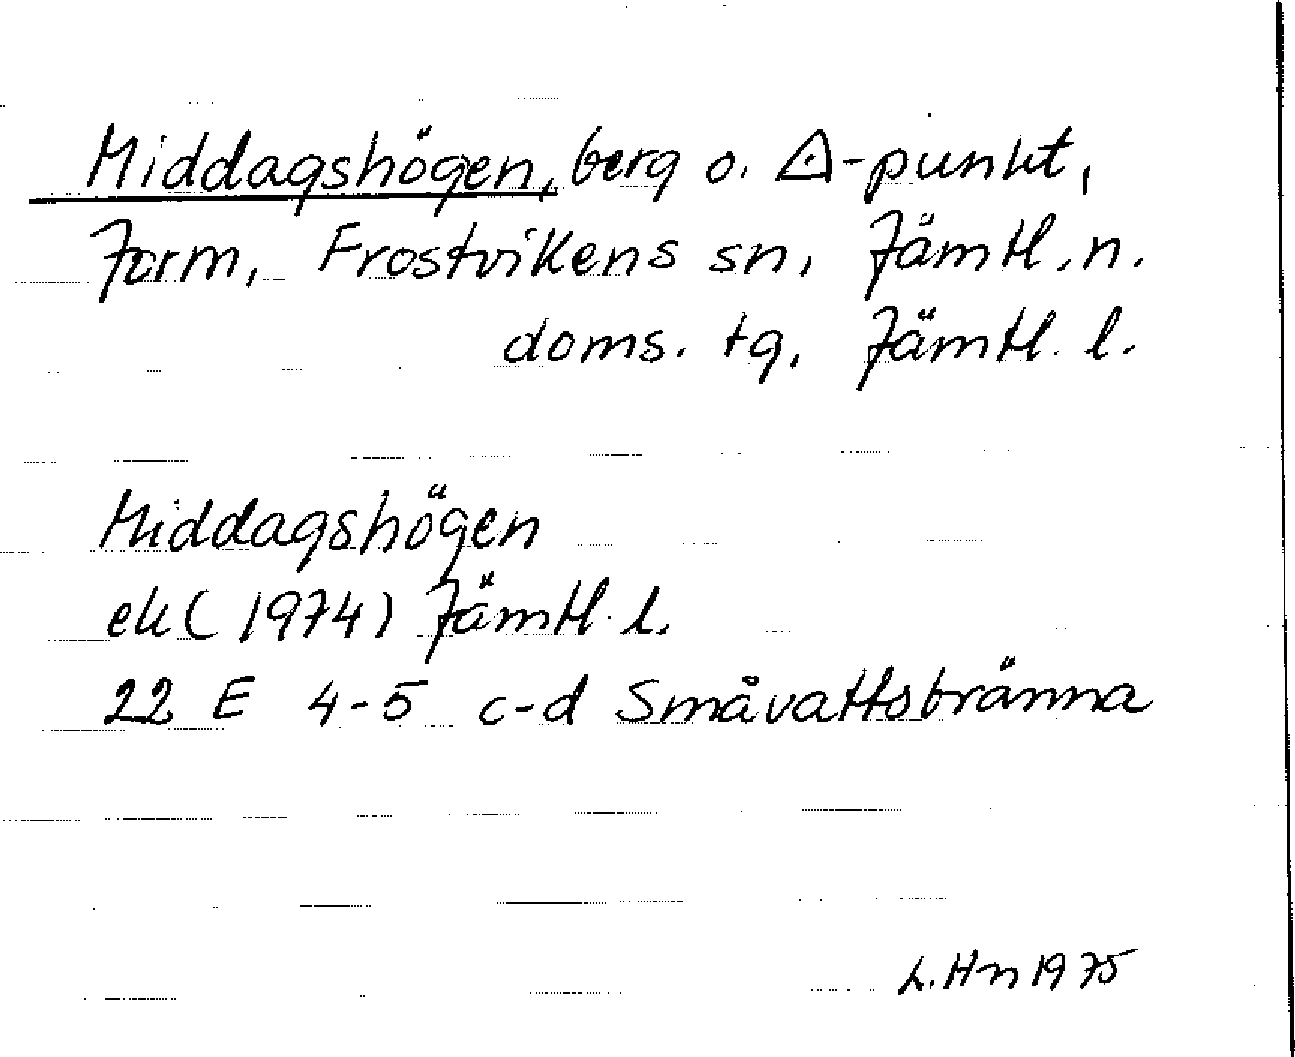 Middagshögen, berg o. △-punkt,
Jorm, Frostvikens sn, Jämtl. n.
doms. tg, Jämtl. l.
Middagshögen
ek (1974) Jämtl. l.
22 E 4-5 c-d Småvattsbränna
L. Hn 1975